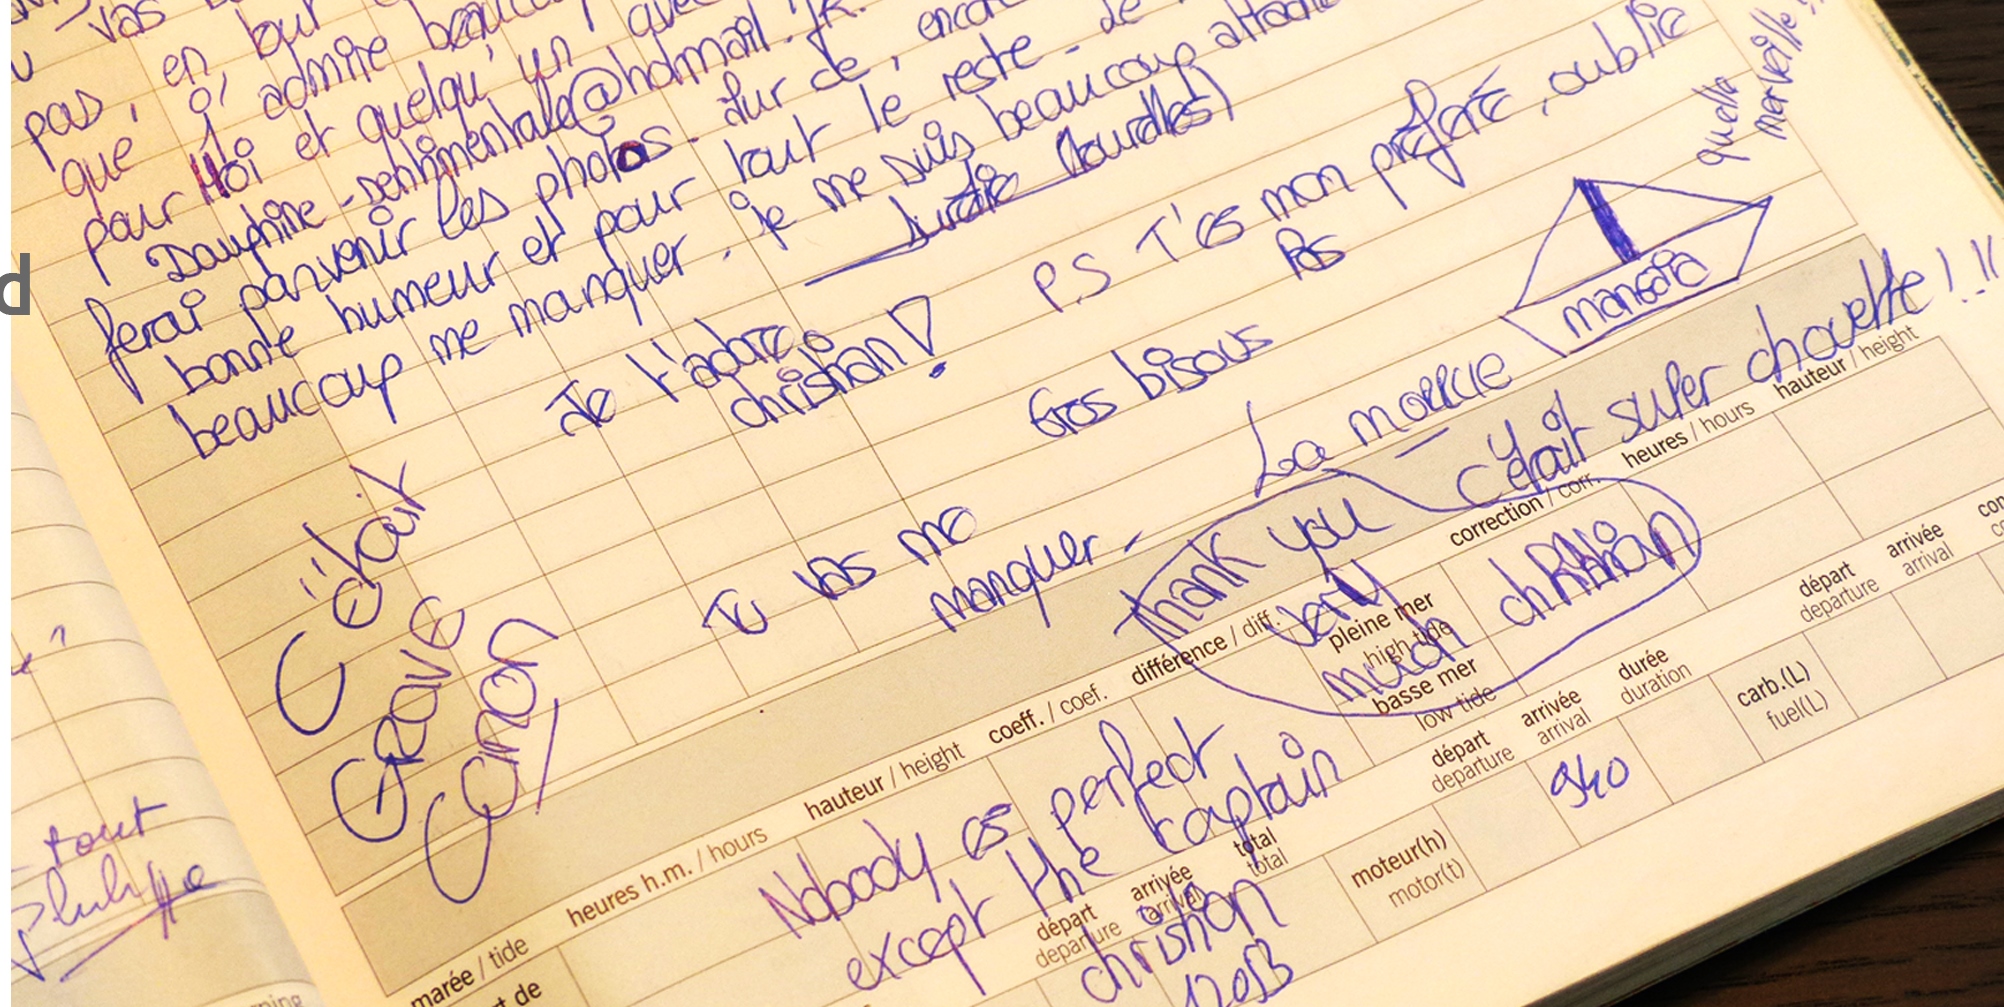 vas
pas, en, tout
que j'admire beaucoup
pour Moi et quelqu'un avec
Dauphine-sentimentale@hotmail.fr.
ferai parvenir les photos. Sur ce, encore
bonne humeur et pour tout le reste. de
beaucoup me manquer. je me suis beaucoup attaché
(Lourdes)
P.S T'es mon préféré, oublie
pas
quelle
merveille!!
manoeia
Je t'adore
christian!
Gros bisous
La moquie
c'était super chouette!!!
Tu vas me
manquer.
C'était
GRAVE
Canon
Thank you
very
much chRistian
Nobody is perfect
except the captain
christian
940
tout
d
correction / corr.
heures / hours
hauteur / height
différence / diff.
pleine mer
high tide
basse mer
low tide
coeff. / coef.
hauteur / height
heures h.m. / hours
marée / tide
départ
departure
arrivée
arrival
durée
duration
départ
departure
arrivée
arrival
total
total
départ
departure
arrivée
arrival
moteur(h)
motor(t)
carb.(L)
fuel(L)